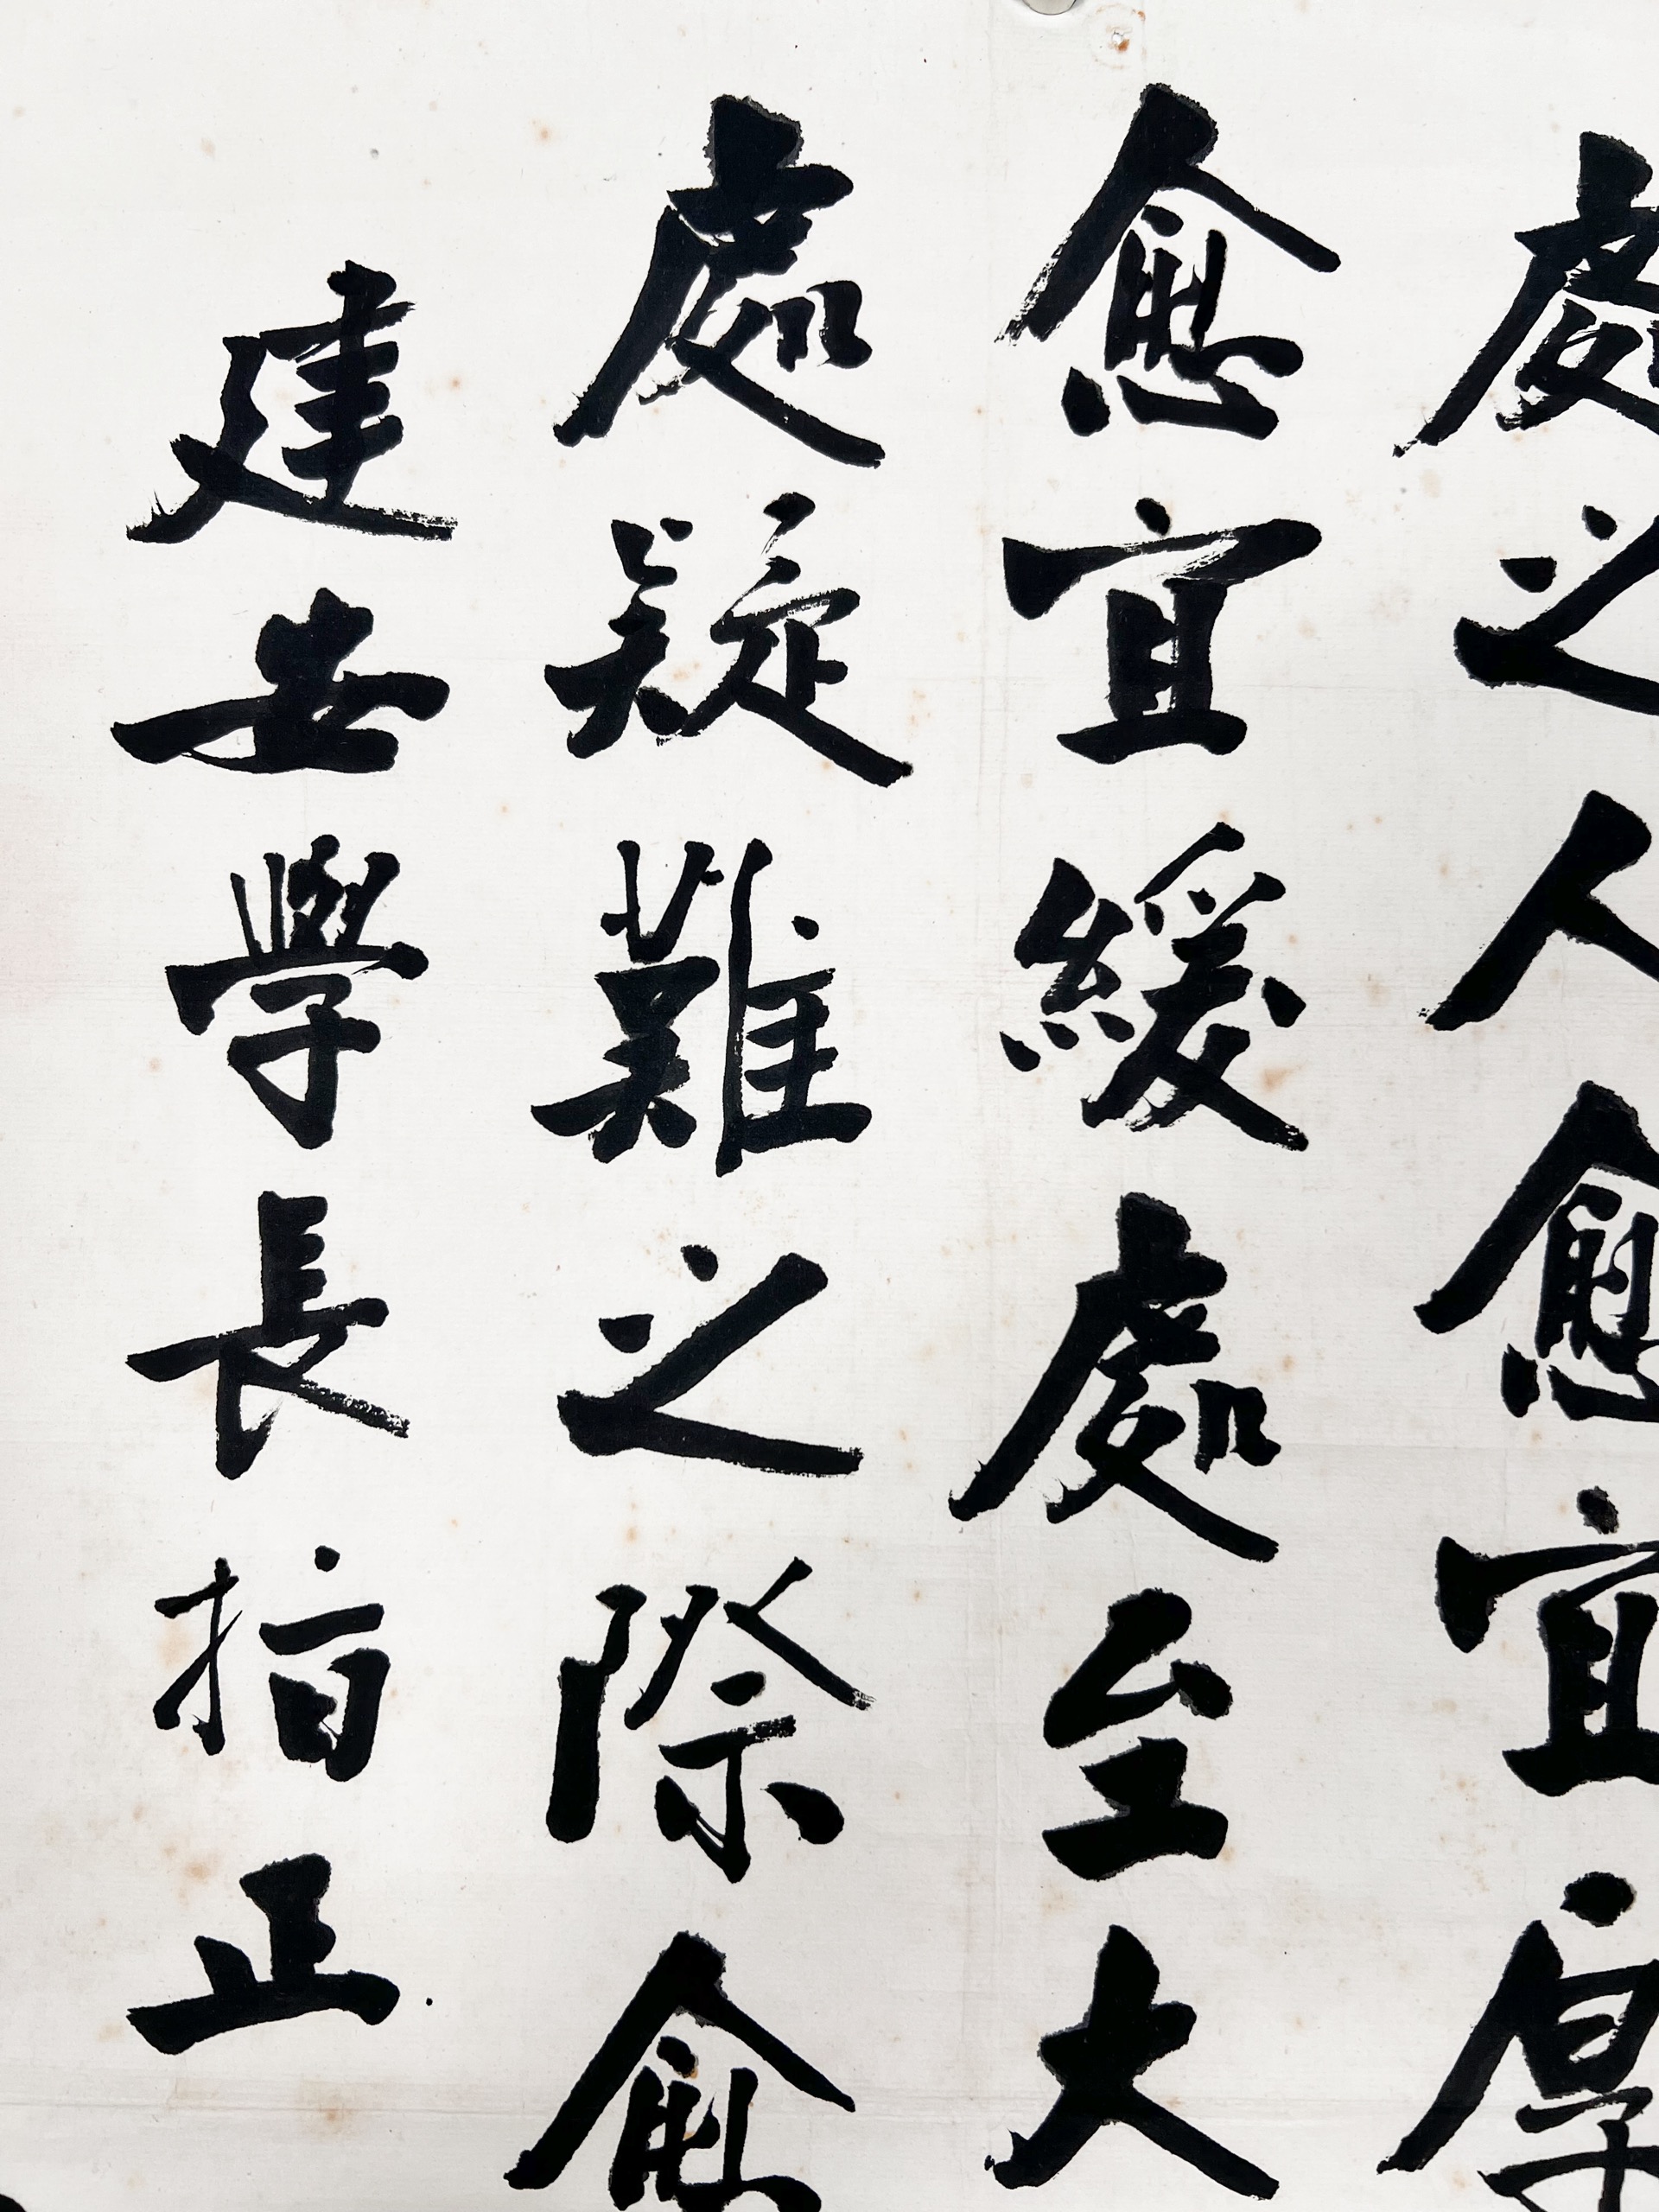 處之人愈宜厚
愈宜緩處至大
處疑難之際愈
建安學長指正